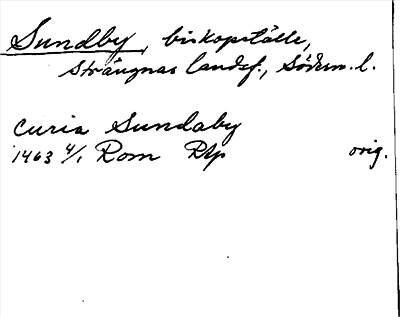 Sundby, biskopställe,
Strängnäs landsf., Söderm. l.
curia Sundaby
1463 4/1 Rom Rtp orig.